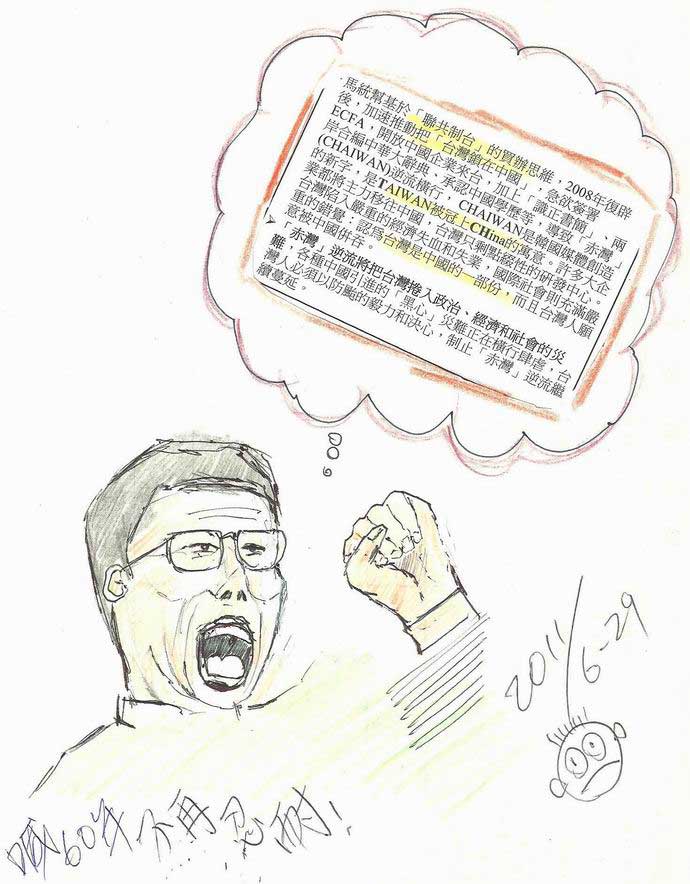 ‧馬統幫基於「聯共制台」的買辦思維，2008年復辟
後，加速推動把「台灣鎖在中國」，急欲簽署
ECFA，開放中國企業來台，加上「識正書簡」、兩
岸合編中華大辭典、承認中國學歷等，導致「赤灣」
(CHAIWAN)逆流橫行，CHAIWAN是韓國媒體創造
的新字，是TAIWAN被冠上CHina的寓意。許多大企
業都將主力移往中國，台灣只剩點綴性的研發中心。
台灣陷入嚴重的經濟失血和失業，國際社會則充滿嚴
重的錯覺：認為台灣是中國的一部份，而且台灣人願
意被中國併吞。
➤「赤灣」逆流將把台灣捲入政治、經濟和社會的災
難，各種中國引進的「黑心」災難正在橫行肆虐，台
灣人必須以防颱的毅力和決心，制止「赤灣」逆流繼
續蔓延。
2011/6-29
60年不再忍耐!